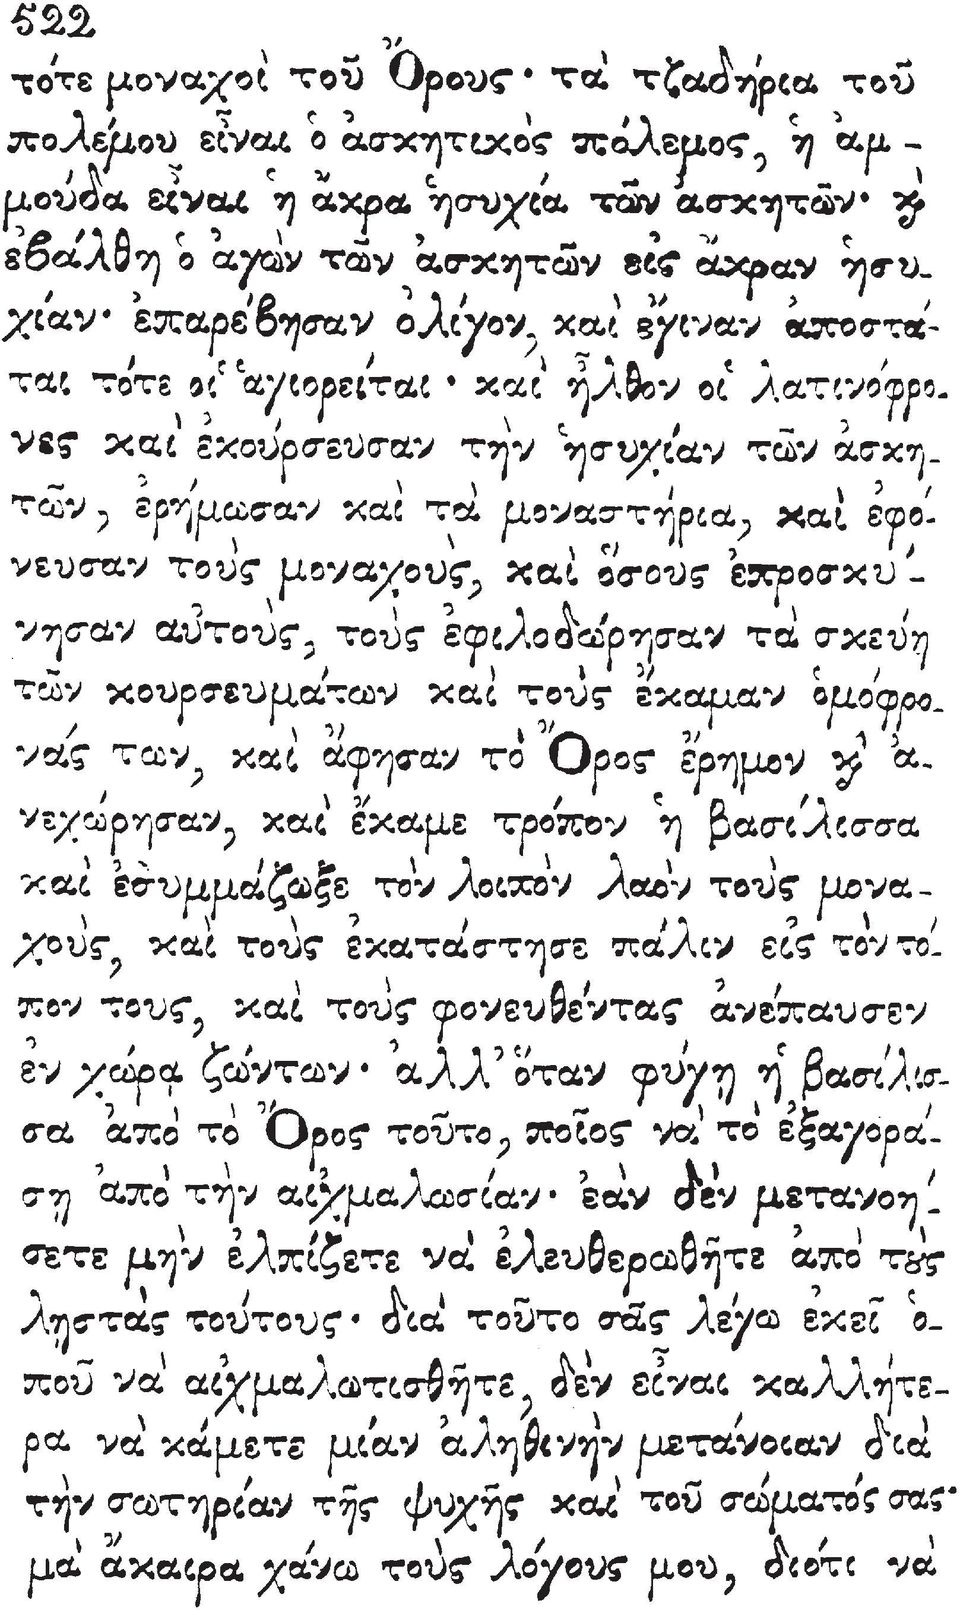 522
τότε μοναχοὶ τοῦ Ὄρους· τὰ τζαδήρια τοῦ
πολέμου εἶναι ὁ ἀσκητικὸς πόλεμος, ἡ ἀμ-
μούδα εἶναι ἡ ἄκρα ἡσυχία τῶν ἀσκητῶν· ϗ̀
ἐβάλθη ὁ ἀγὼν τῶν ἀσκητῶν εἰς ἄκραν ἡσυ-
χίαν· ἐπαρέβησαν ὀλίγον, καὶ ἔγιναν ἀποστά-
ται τότε οἱ ἁγιορεῖται · καὶ ἦλθον οἱ λατινόφρο-
νες καὶ ἐκούρσευσαν τὴν ἡσυχίαν τῶν ἀσκη-
τῶν, ἐρήμωσαν καὶ τὰ μοναστήρια, καὶ ἐφό-
νευσαν τοὺς μοναχοὺς, καὶ ὅσους ἐπροσκύ-
νησαν αὐτοὺς, τοὺς ἐφιλοδώρησαν τὰ σκεύη
τῶν κουρσευμάτων καὶ τοὺς ἔκαμαν ὁμόφρο-
νάς των, καὶ ἄφησαν τὸ Ὄρος ἔρημον ϗ̀ ἀ-
νεχώρησαν, καὶ ἔκαμε τρόπον ἡ βασίλισσα
καὶ ἐσυμμάζωξε τὸν λοιπὸν λαὸν τοὺς μονα-
χοὺς, καὶ τοὺς ἐκατάστησε πάλιν εἰς τὸν τό-
πον τους, καὶ τοὺς φονευθέντας ἀνέπαυσεν
ἐν χώρᾳ ζώντων· ἀλλ' ὅταν φύγῃ ἡ βασίλισ-
σα ἀπὸ τὸ Ὄρος τοῦτο, ποῖος νὰ τὸ ἐξαγορά-
σῃ ἀπὸ τὴν αἰχμαλωσίαν· ἐὰν δὲν μετανοή-
σετε μὴν ἐλπίζετε νὰ ἐλευθερωθῆτε ἀπὸ τȣ̀ς
λῃστὰς τούτους· διὰ τοῦτο σᾶς λέγω ἐκεῖ ὁ-
ποῦ νὰ αἰχμαλωτισθῆτε, δὲν εἶναι καλλήτε-
ρα νὰ κάμετε μίαν ἀληθινὴν μετάνοιαν διὰ
τὴν σωτηρίαν τῆς ψυχῆς καὶ τοῦ σώματός σας·
μὰ ἄκαιρα χάνω τοὺς λόγους μου, διότι νὰ